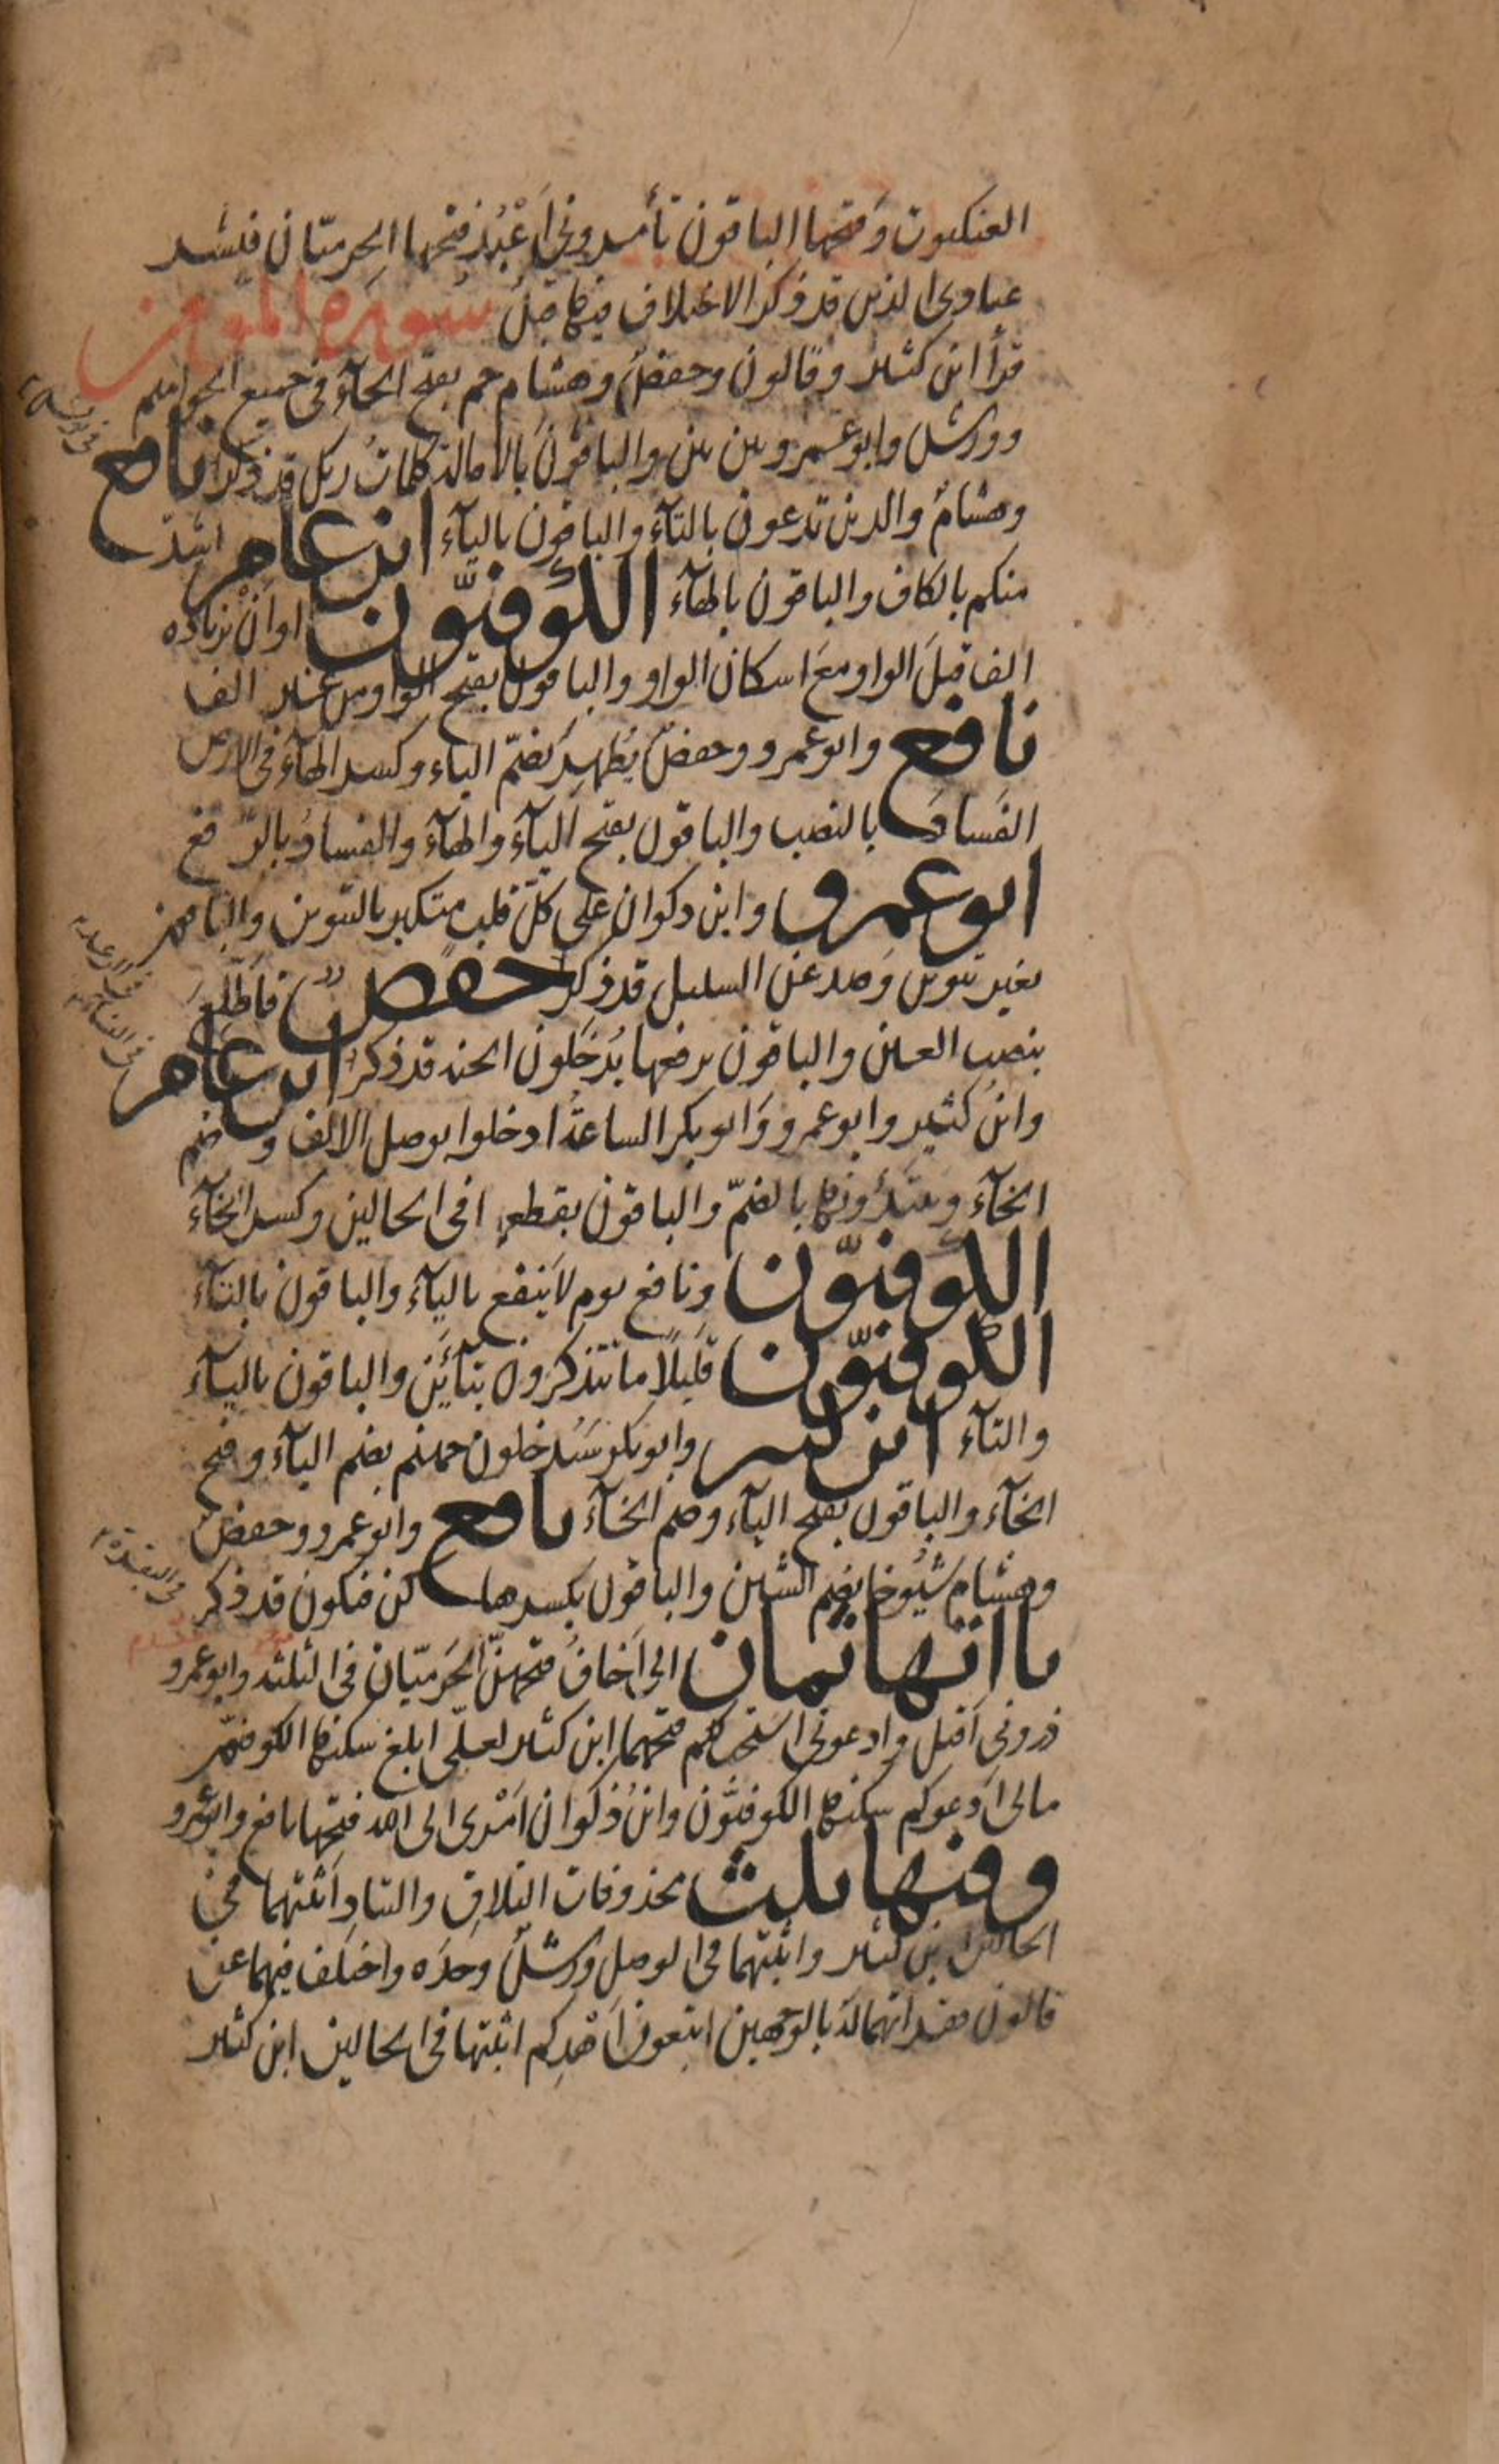 العنكبوت وفتحها الباقون تأمروني أَعْبُدُ فتحها الحرميّان فبشر
عبادى الذين قد ذكر الاختلاف فيها قبل سورة المؤمن
قرأ ابن كثير وقالون وحفصٌ وهشام حم بفتح الحآء فى جميع الحواميم
وورش وابو عمرو بين بين والباقون بالامالة كلماتُ ربك قد ذكر نافع
فى يونس
وهشامٌ والذين تدعون بالتآء والباقون باليآء ابن عامر اشدّ
منكم بالكاف والباقون بالهآء الكوفيّون او اَنْ بزيادة
الف قبلَ الواو معَ اسكان الواو والباقون بفتح الواو من غير الف
نافع وابو عمرو وحفصٌ يُظْهِرَ بضمّ الياء وكسر الهآء فى الارض
الفَسادَ بالنصب والباقون بفتح اليآء والهآء والفسادُ بالرّفع
ابو عمرو وابن ذكوان على كلّ قلبٍ متكبر بالتنوين والباقون
بغير تنوين وَصد عن السبيل قد ذكر حفصٌ فاَطّلِعَ
فى الرعد
بنصب العين والباقون برفعها يُدخَلون الجنة قد ذكر ابن عامر
فى النساء
وابنُ كثير وابو عمرو وَابو بكر الساعةُ ادخلوا بوصل الالف وضم
الخآء ويبتدؤنها بالضمّ والباقون بقطعها فى الحالين وكسر الخآء
الكوفيّون ونافع يوم لا ينفع باليآء والباقون بالتآء
الكوفيّون قليلًا ما تتذكرون بتآئَين والباقون باليآء
والتآء ابن كثير وابو بكر سَيُدخلون جهنم بضم اليآء وفتح
الخآء والباقون بفتح اليآء وضم الخآء نافع وابو عمرو وحفصٌ
وهشام شُيُوخا بضم الشين والباقون بكسرها كن فيكون قد ذكر
فى البقرة
يااتها ثمان انى اَخافُ فتحهنّ الحَرميّان فى الثلثة وابو عمرو
ذرونى اَقتل وادعونى استجب لكم فتحهما ابن كثير لعلّى ابلغ سكنها الكوفيّون
مالى اَدعوكم سكنها الكوفيّون وابنُ ذكوان اَمْرى الى الله فتحها نافع وابو عمرو
وفيها ثلث محذوفات التلاقِ والتنادِ اَثبتهما فى
الحالين ابن كثير واثبتهما فى الوصل ورشٌ وحدَه واختلف فيهما عن
قالون فقرأتهما له بالوجهين اتبعون اَهْدِكم اثبتها فى الحالين ابن كثير